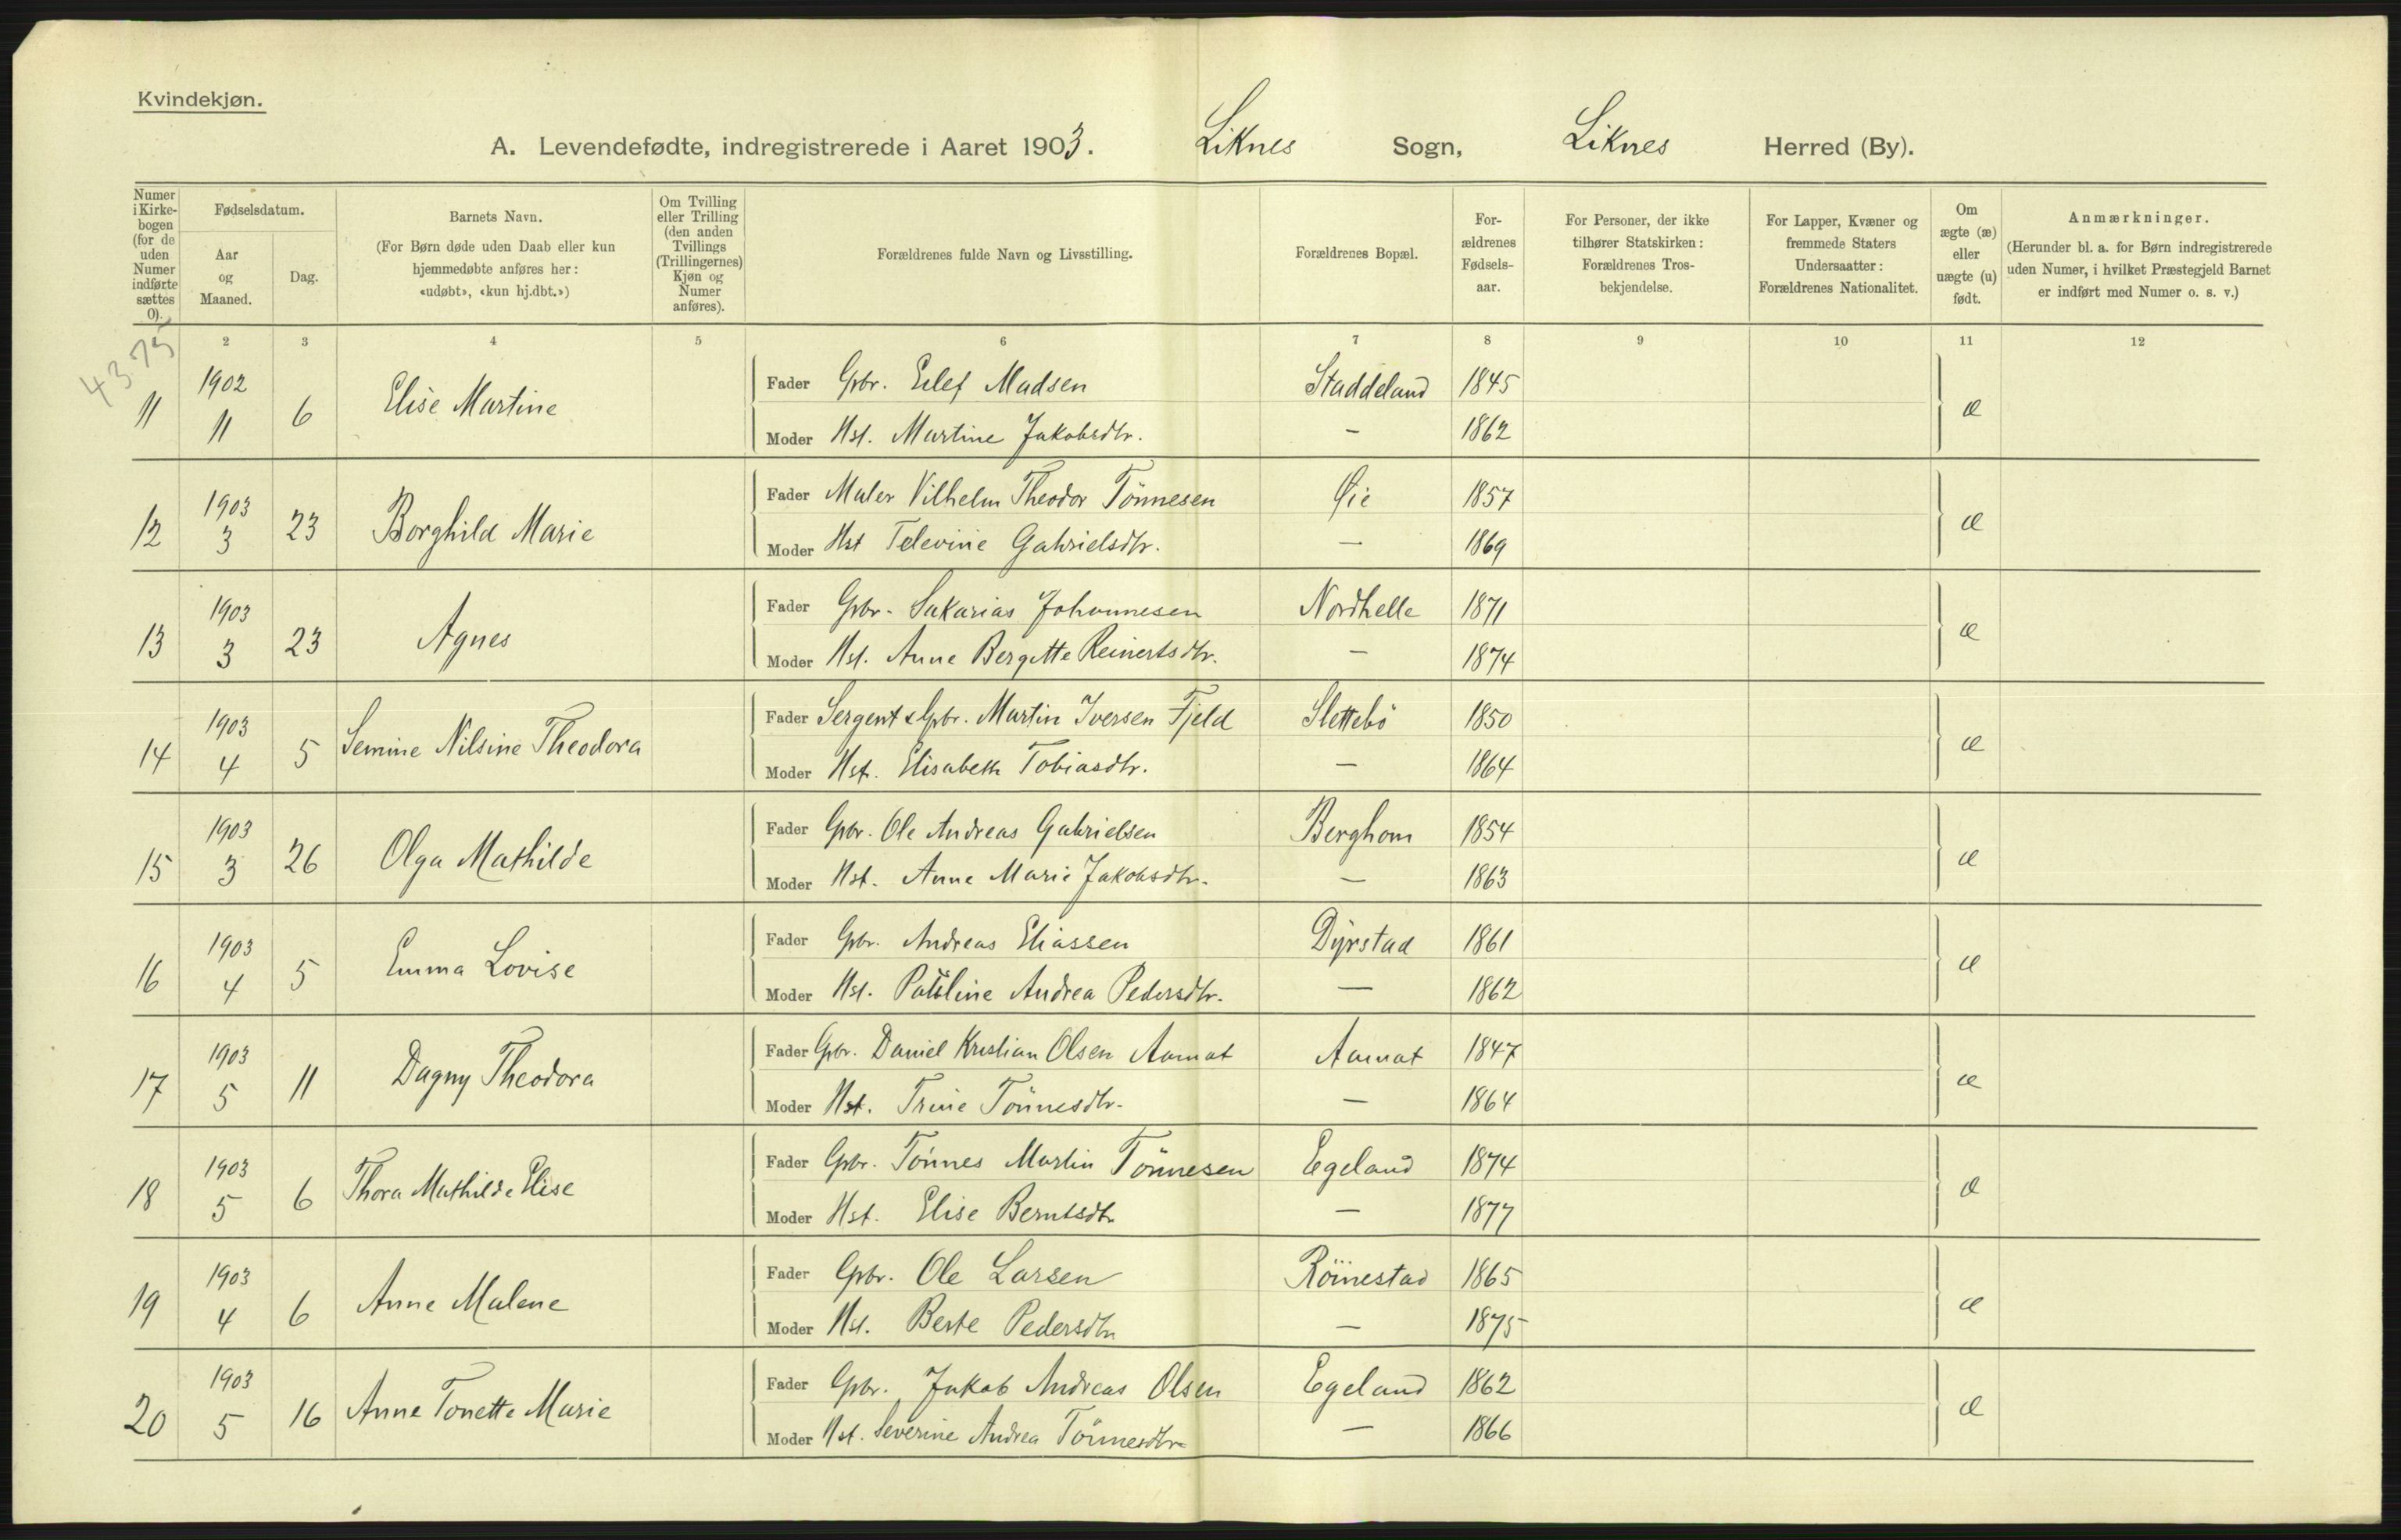 Kvindekjøn.
A. Levendefødte, indregistrerede i Aaret 1903. Liknes Sogn, Liknes Herred (By).
Numer i Kirkebogen (for de uden Numer indførte sættes 0).
Fødselsdatum.
Aar og Maaned.
Dag.
Barnets Navn.
(For Børn døde uden Daab eller kun hjemmedøbte anføres her: «udøbt», «kun hj.dbt.»)
Om Tvilling eller Trilling (den anden Tvillings (Trillingernes) Kjøn og Numer anføres).
Forældrenes fulde Navn og Livsstilling.
Forældrenes Bopæl.
Forældrenes Fødselsaar.
For Personer, der ikke tilhører Statskirken: Forældrenes Trosbekjendelse.
For Lapper, Kvæner og fremmede Staters Undersaatter: Forældrenes Nationalitet.
Om ægte (æ) eller uægte (u) født.
Anmærkninger.
(Herunder bl. a. for Børn indregistrerede uden Numer, i hvilket Præstegjeld Barnet er indført med Numer o. s. v.)
2 3 4 5 6 7 8 9 10 11 12
43.75
11 1902 11 6 Elise Martine Fader Gbr. Eilef Madsen Staddeland 1845 æ
Moder Hst. Martine Jakobsdtr. — 1862
12 1903 3 23 Borghild Marie Fader Maler Vilhelm Theodor Tönnesen Øie 1857 æ
Moder Hst Televine Gabrielsdtr. — 1869
13 1903 3 23 Agnes Fader Gbr. Sakarias Johannesen Nordhelle 1871 æ
Moder Hst. Anne Bergitte Reinertsdtr. — 1874
14 1903 4 5 Semine Nilsine Theodora Fader Sergent & Gbr. Martin Iversen Fjeld Slettebö 1850 æ
Moder Hst. Elisabeth Tobiasdtr. — 1864
15 1903 3 26 Olga Mathilde Fader Gbr. Ole Andreas Gabrielsen Berghom 1854 æ
Moder Hst. Anne Marie Jakobsdtr. — 1863
16 1903 4 5 Emma Lovise Fader Gbr. Andreas Eliassen Dyrstad 1861 æ
Moder Hst. Pauline Andrea Pedersdtr. — 1862
17 1903 5 11 Dagny Theodora Fader Gbr. Daniel Kristian Olsen Aamot Aamot 1847 æ
Moder Hst. Trine Tönnesdtr. — 1864
18 1903 5 6 Thora Mathilde Elise Fader Gbr. Tönnes Martin Tönnesen Egeland 1874 æ
Moder Hst. Elise Berntsdtr — 1877
19 1903 4 6 Anne Malene Fader Gbr. Ole Larsen Röinestad 1865 æ
Moder Hst. Berte Pedersdtr — 1875
20 1903 5 16 Anne Tonette Marie Fader Gbr. Jakob Andreas Olsen Egeland 1862 æ
Moder Hst. Severine Andrea Tönnesdtr — 1866